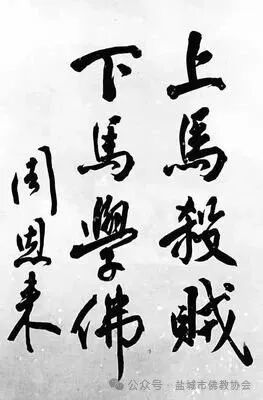 上馬殺賊
下馬學佛
周恩来
公众号·盐城市佛教协会